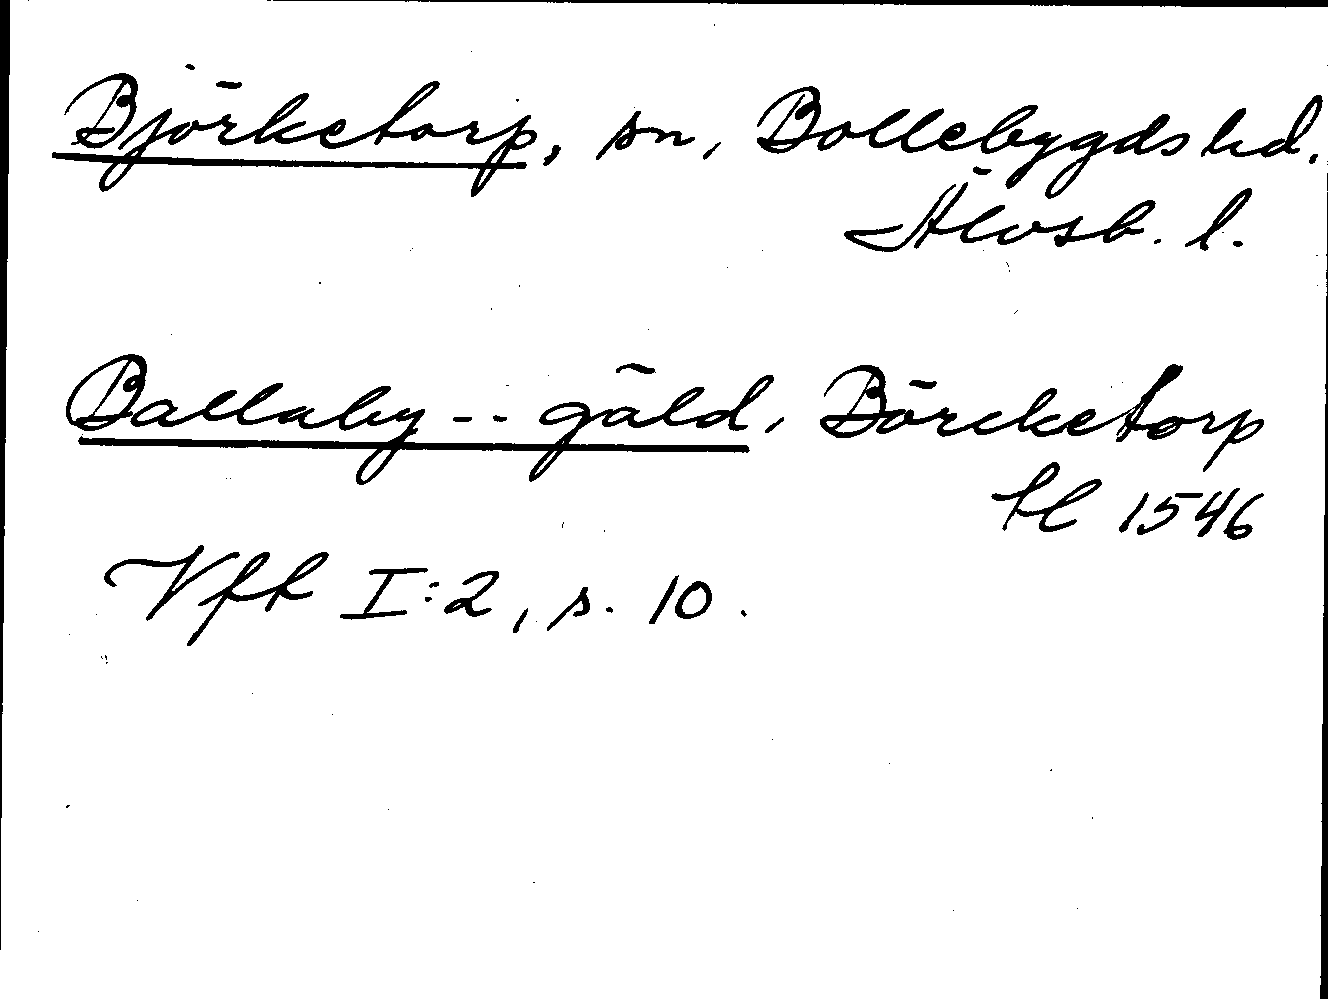 Björketorp, sn, Bollebygds hd.
Älvsb. l.
Ballaby -- gäld, Börcketorp
hl 1546
Vfk I:2, s. 10.